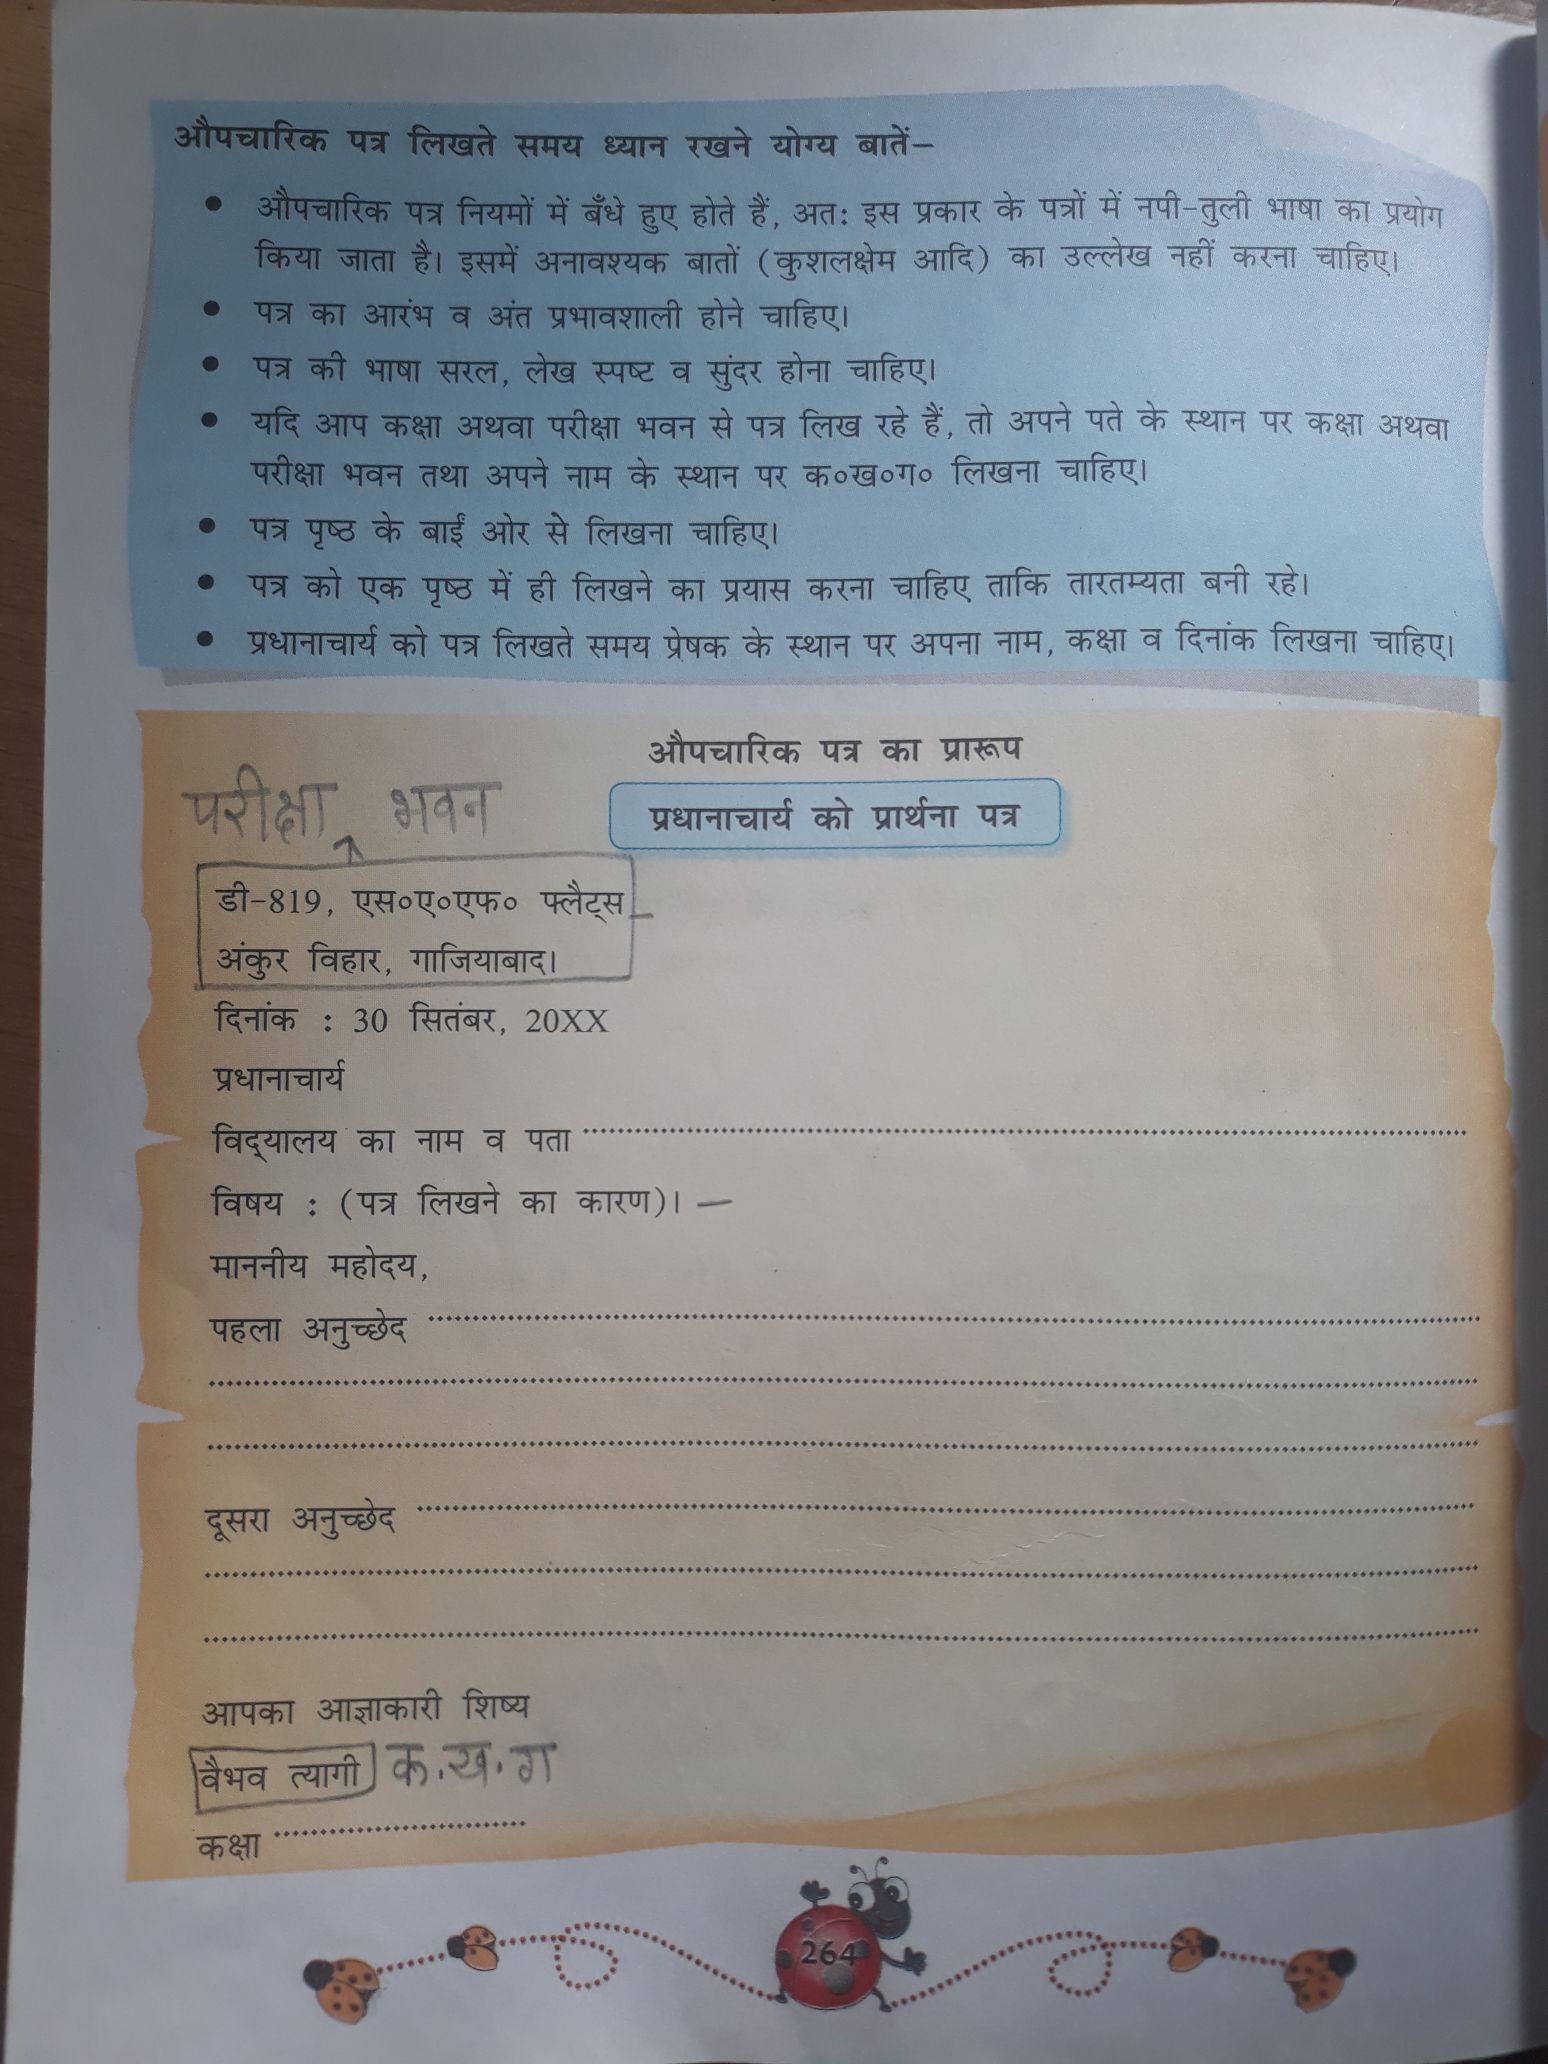 औपचारिक पत्र लिखते समय ध्यान रखने योग्य बातें–
• औपचारिक पत्र नियमों में बँधे हुए होते हैं, अतः इस प्रकार के पत्रों में नपी-तुली भाषा का प्रयोग
किया जाता है। इसमें अनावश्यक बातों (कुशलक्षेम आदि) का उल्लेख नहीं करना चाहिए।
• पत्र का आरंभ व अंत प्रभावशाली होने चाहिए।
• पत्र की भाषा सरल, लेख स्पष्ट व सुंदर होना चाहिए।
• यदि आप कक्षा अथवा परीक्षा भवन से पत्र लिख रहे हैं, तो अपने पते के स्थान पर कक्षा अथवा
परीक्षा भवन तथा अपने नाम के स्थान पर क०ख०ग० लिखना चाहिए।
• पत्र पृष्ठ के बाईं ओर से लिखना चाहिए।
• पत्र को एक पृष्ठ में ही लिखने का प्रयास करना चाहिए ताकि तारतम्यता बनी रहे।
• प्रधानाचार्य को पत्र लिखते समय प्रेषक के स्थान पर अपना नाम, कक्षा व दिनांक लिखना चाहिए।
औपचारिक पत्र का प्रारूप
परीक्षा भवन
प्रधानाचार्य को प्रार्थना पत्र
डी-819, एस०ए०एफ० फ्लैट्स
अंकुर विहार, गाजियाबाद।
दिनांक : 30 सितंबर, 20XX
प्रधानाचार्य
विद्‌यालय का नाम व पता ........................
विषय : (पत्र लिखने का कारण)। –
माननीय महोदय,
पहला अनुच्छेद ........................
दूसरा अनुच्छेद ........................
आपका आज्ञाकारी शिष्य
वैभव त्यागी क.ख.ग
कक्षा ........................
264